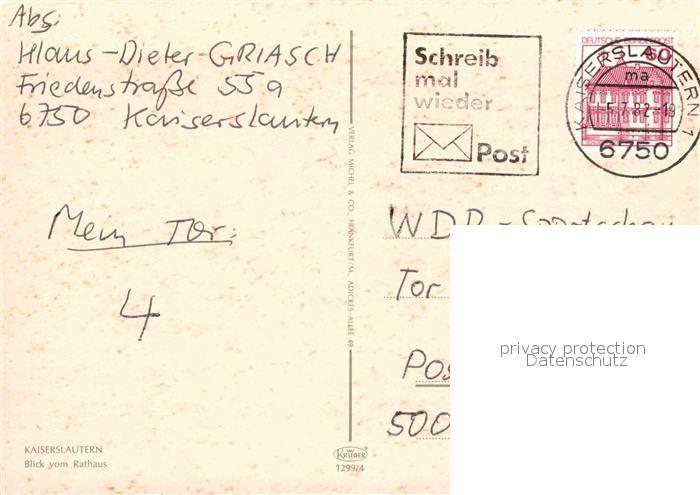 Abs:
Klaus-Dieter GRIASCH
Friedenstraße 55a
6750 Kaiserslautern
Mein Tor:
4
KAISERSLAUTERN
Blick vom Rathaus
VERLAG MICHEL & CO., FRANKFURT/M. ADICKES-ALLEE 49
KRÜGER
1299/4
Schreib
mal
wieder
Post
DEUTSCHE BUNDESPOST
60
KAISERSLAUTERN 1
ma
-5.7.82-18
6750
WDR-Sportschau
Tor
Pos
500
privacy protection
Datenschutz